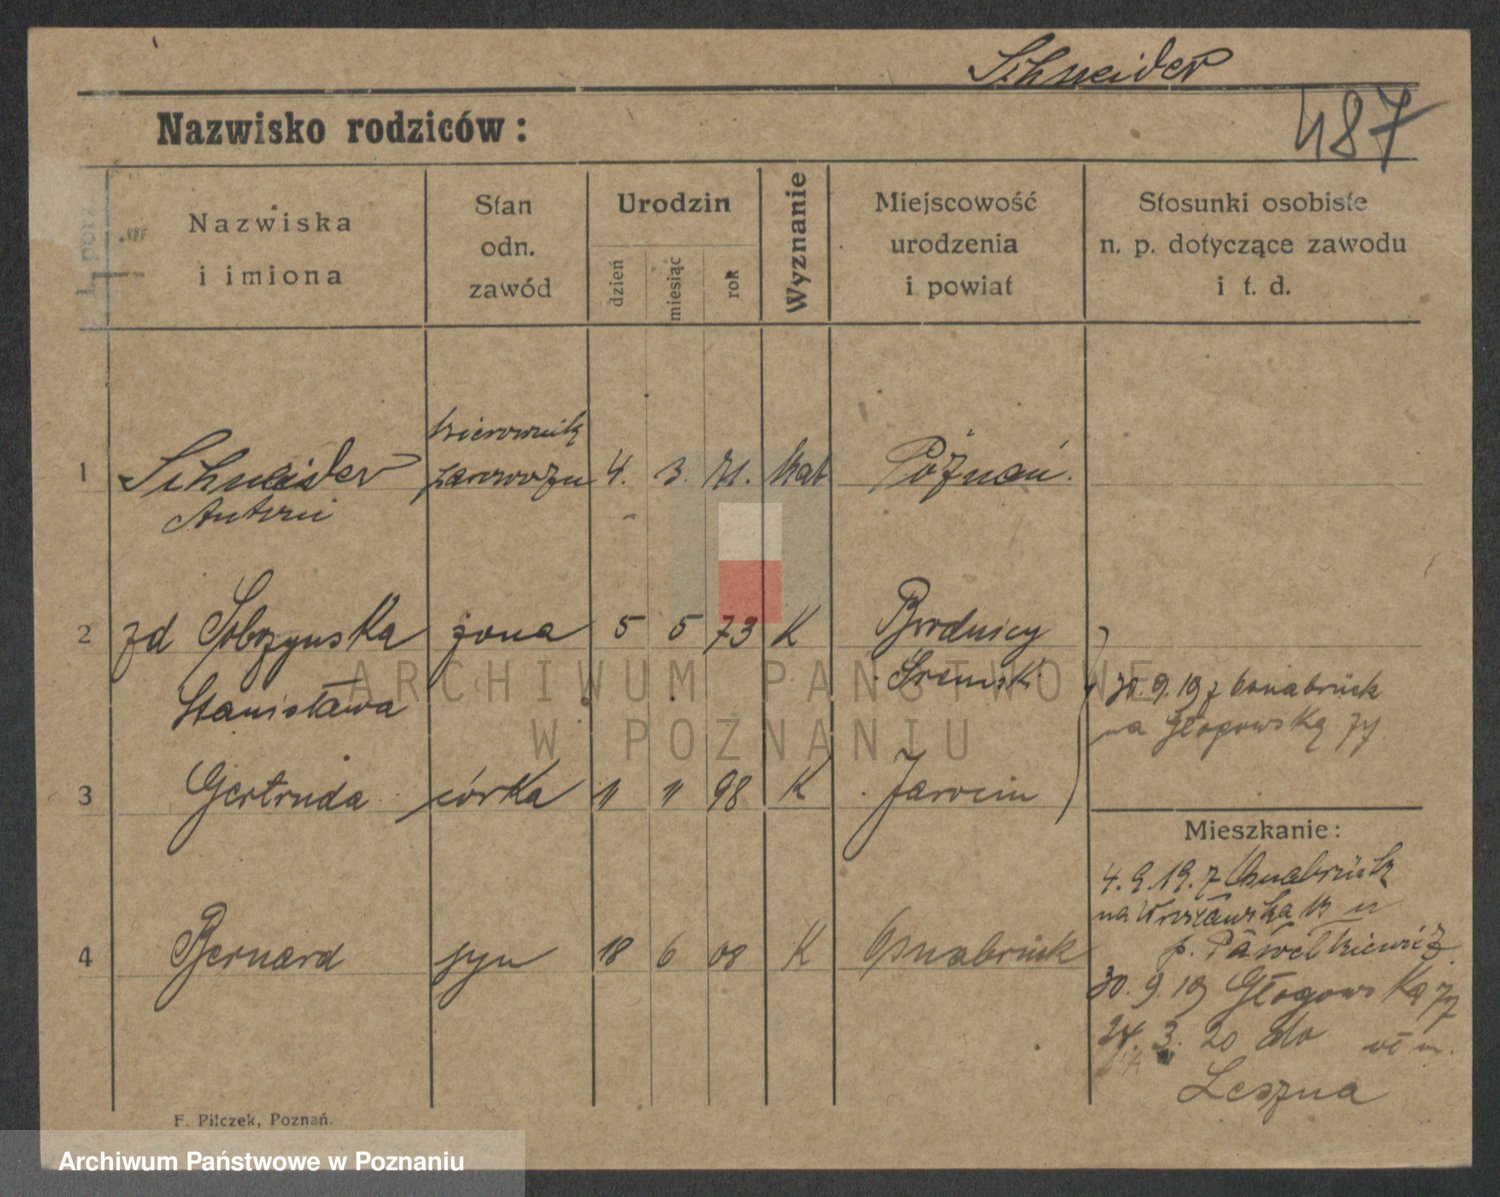 Schneider
487
Nazwisko rodziców:
Nazwiska
i imiona
Stan
odn.
zawód
Urodzin
dzień
miesiąc
rok
Wyznanie
Miejscowość
urodzenia
i powiat
Stosunki osobiste
n. p. dotyczące zawodu
i t. d.
kierownik
1 Schneider parowozu 4. 3. 71. kat Poznań.
Antoni
2 zd Sobczynska żona 5 5 73 K Brodnicy
Stanisława Śremski
30.9.19 z Osnabrück
na Głogowską
3 Gertruda córka 11 11 98 K Jarocin
Mieszkanie:
4.9.19. z Osnabrück
na Wrocławska 13 u
p. Pawełkiewicz
4 Bernard syn 18 6 08 K Osnabrück
30.9.19 Głogowską
24. 3. 20 do
Leszna
F. Pilczek, Poznań.
ARCHIWUM PAŃSTWOWE
W POZNANIU
Archiwum Państwowe w Poznaniu